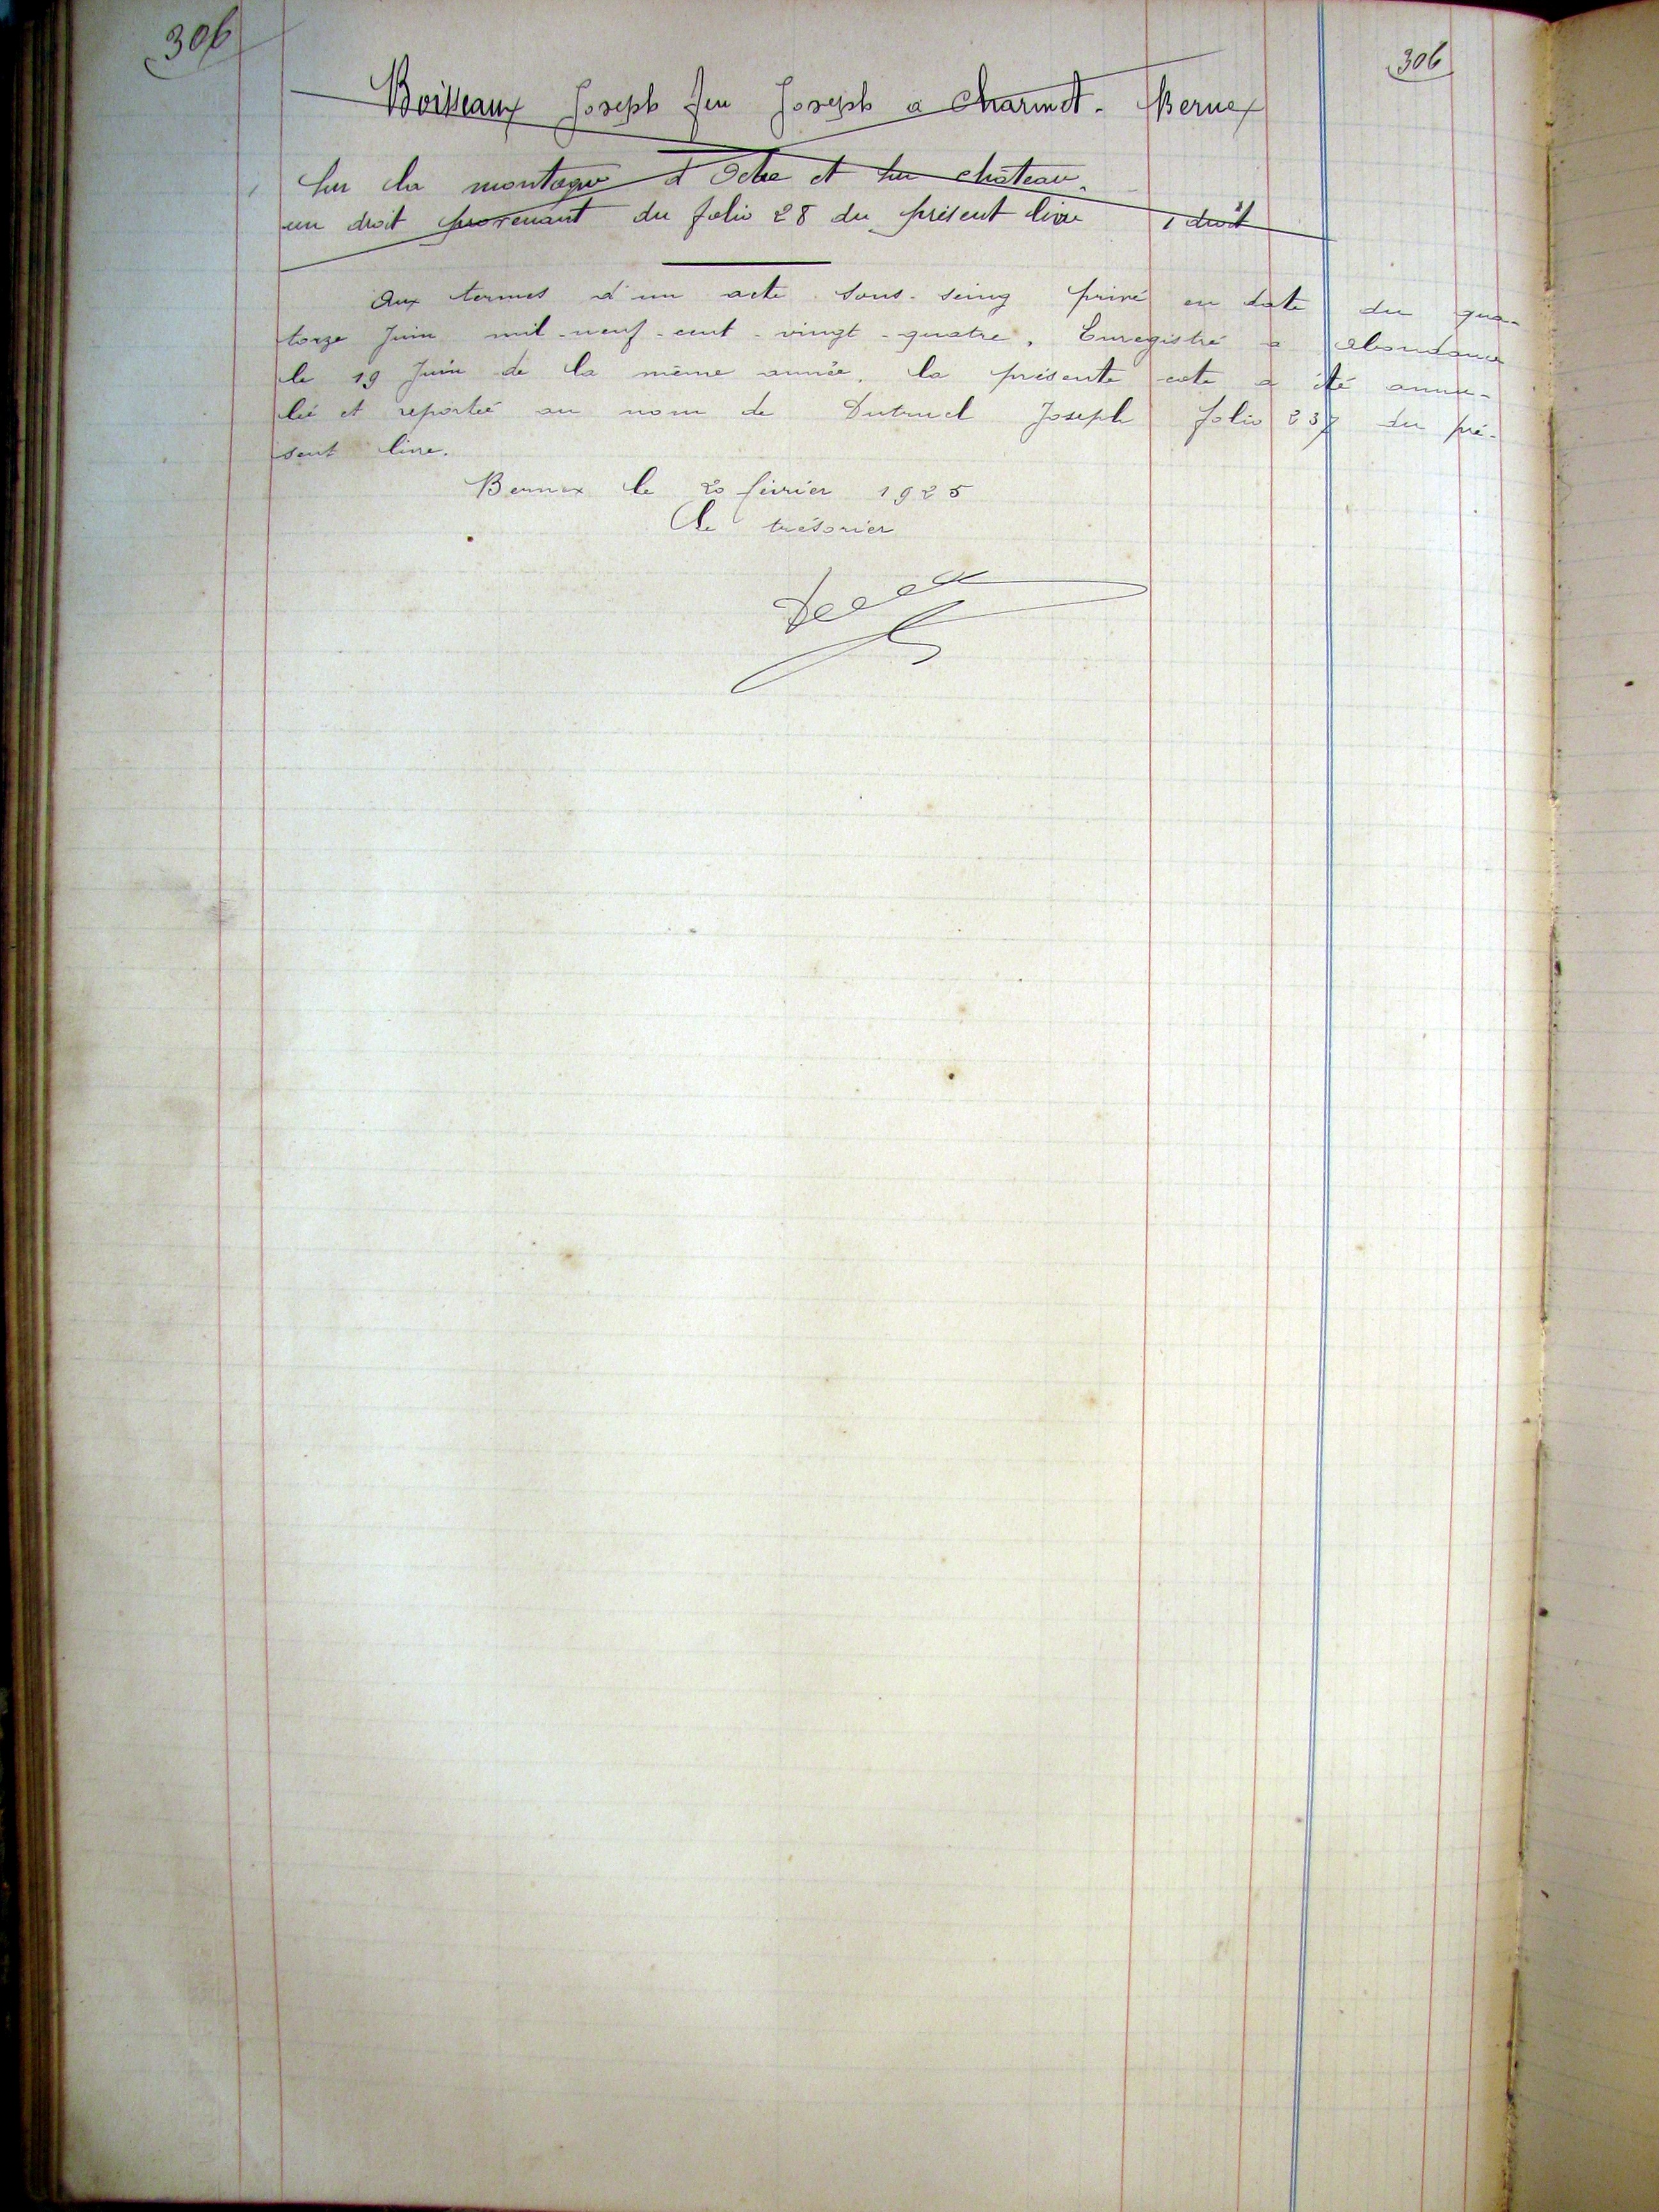 306
306
Boisseaux Joseph feu Joseph a Charmet. Bernex
Sur la montagne d'Oche et sur château.
un droit provenant du folio 28 du présent livre 1 droit
Aux termes d'un acte sous-seing privé en date du qua-
torze Juin mil-neuf-cent-vingt-quatre, Enregistré a abondance
le 19 Juin de la même année, la présente cote a été annu-
lée et reportée au nom de Dutruel Joseph folio 237 du pré-
sent livre.
Bernex le 20 février 1925
Le trésorier